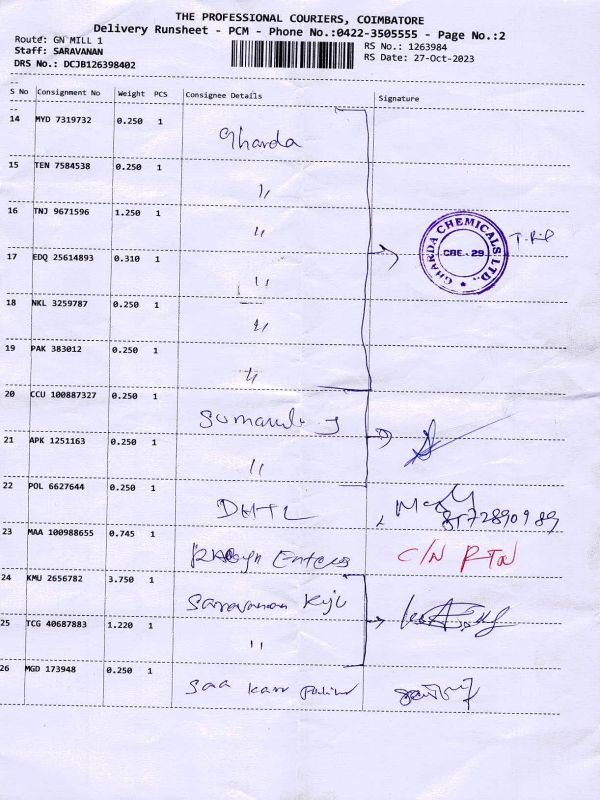 THE PROFESSIONAL COURIERS, COIMBATORE
Delivery Runsheet - PCM - Phone No.:0422-3505555 - Page No.:2
Route: GN MILL 1
RS No.: 1263984
Staff: SARAVANAN
RS Date: 27-Oct-2023
DRS No.: DCJB126398402
S No Consignment No Weight PCS Consignee Details Signature
14 MYD 7319732 0.250 1 Gharda
15 TEN 7584538 0.250 1 "
16 TNJ 9671596 1.250 1 "
GHARDA CHEMICALS LTD.,
CBE - 29
17 EDQ 25614893 0.310 1 "
18 NKL 3259787 0.250 1 "
19 PAK 383012 0.250 1 "
20 CCU 100887327 0.250 1
21 APK 1251163 0.250 1 "
22 POL 6627644 0.250 1 DHTL
8572890989
23 MAA 100988655 0.745 1 C/N RTN
24 KMU 2656782 3.750 1 Saravanan
25 TCG 40687883 1.220 1 "
26 MGD 173948 0.250 1